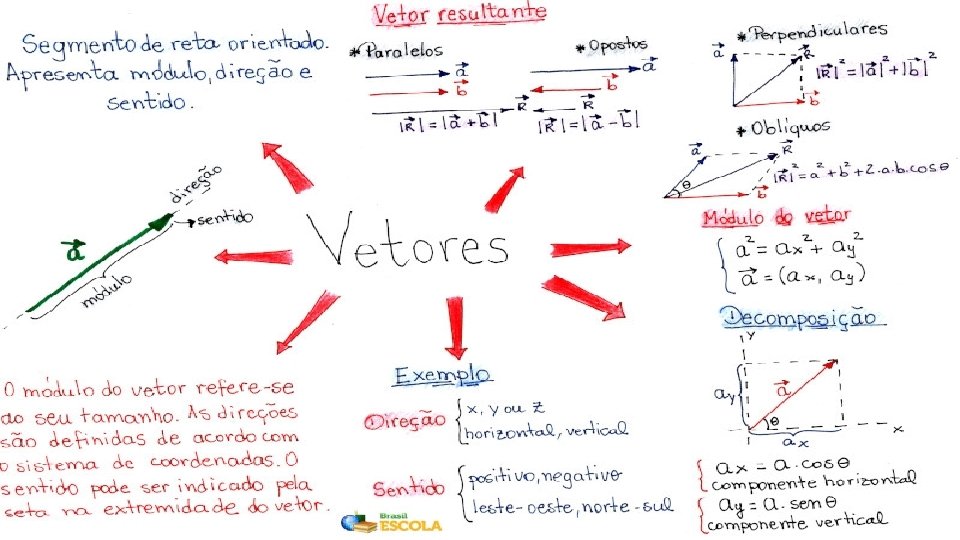 Segmento de reta orientado.
Apresenta módulo, direção e
sentido.
Vetor resultante
* Paralelos
a
b
R
|R| = |a + b|
* Opostos
a
b
R
|R| = |a - b|
* Perpendiculares
a
R
b
|R|² = |a|² + |b|²
* Oblíquos
a
R
θ
b
|R|² = a² + b² + 2.a.b.cosθ
direção
sentido
a
módulo
Vetores
Módulo do vetor
a² = ax² + ay²
a = (ax, ay)
Decomposição
y
ay
a
θ
x
ax
ax = a.cosθ
componente horizontal
ay = a.senθ
componente vertical
O módulo do vetor refere-se
ao seu tamanho. As direções
são definidas de acordo com
o sistema de coordenadas. O
sentido pode ser indicado pela
seta na extremidade do vetor.
Exemplo
Direção
x, y ou z
horizontal, vertical
Sentido
positivo, negativo
leste-oeste, norte-sul
Brasil
ESCOLA